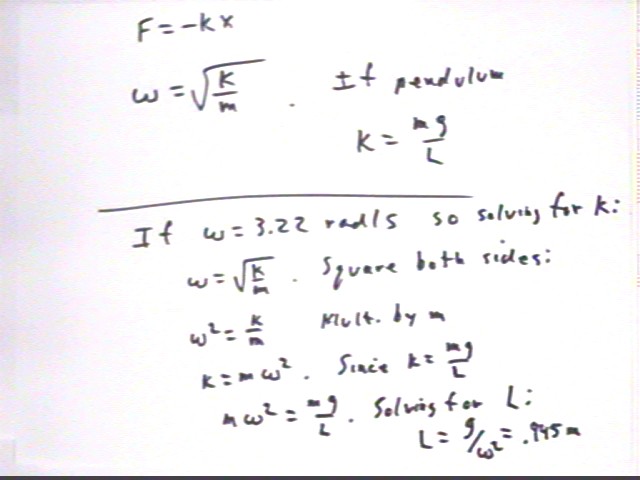 F = -kx
ω = √(k/m) . If pendulum
k = mg/L
If ω = 3.22 rad/s so solving for k:
ω = √(k/m) . Square both sides:
ω² = k/m Mult. by m
k = mω² . Since k = mg/L
mω² = mg/L . Solving for L:
L = g/ω² = .945m